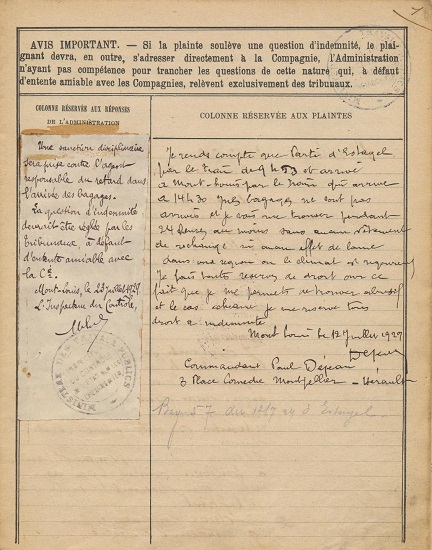 AVIS IMPORTANT. — Si la plainte soulève une question d'indemnité, le plai-
gnant devra, en outre, s'adresser directement à la Compagnie, l'Administration
n'ayant pas compétence pour trancher les questions de cette nature qui, à défaut
d'entente amiable avec les Compagnies, relèvent exclusivement des tribunaux.
COLONNE RÉSERVÉE AUX RÉPONSES
DE L'ADMINISTRATION
Une sanction disciplinaire
sera prise contre l'agent
responsable du retard dans
l'arrivée des bagages.
La question d'indemnité
devrait être réglée par les
tribunaux, à défaut
d'entente amiable avec
la Cie.
Mont-Louis, le 23 juillet 1927
L'Inspecteur du Contrôle,
MINISTÈRE DES TRAVAUX PUBLICS
COLONNE RÉSERVÉE AUX PLAINTES
Je rends compte que Parti d'Estagel
par le train de 9h53 et arrivé
à Mont-Louis par le train qui arrive
à 14h30 mes bagages ne sont pas
arrivés et je vais me trouver pendant
24 heures au moins sans aucun vêtement
de rechange ni aucun effet de laine
dans une région où le climat est rigoureux
Je fais toute réserve de droit sur ce
fait que je me permets
et le cas échéant je me réserve tous
droit à indemnité
Mont Louis le 12 Juillet 1927
Dejean
Commandant Paul Dejean
3 Place Comédie Montpellier - Hérault